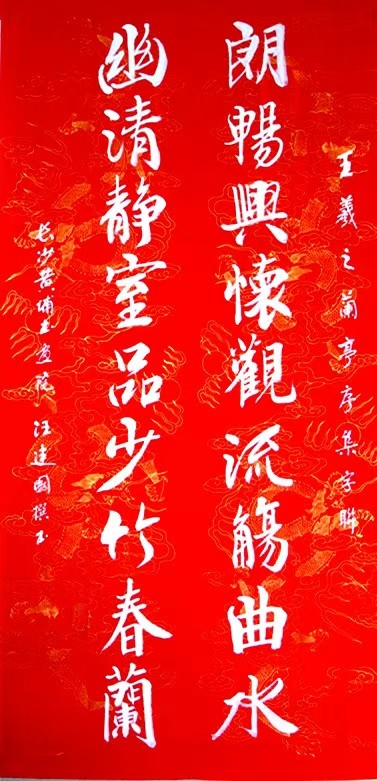 王羲之蘭亭序集字聯
朗暢興懷觀流觴曲水
幽清靜室品少竹春蘭
长沙黄埔书画院汪建國撰书